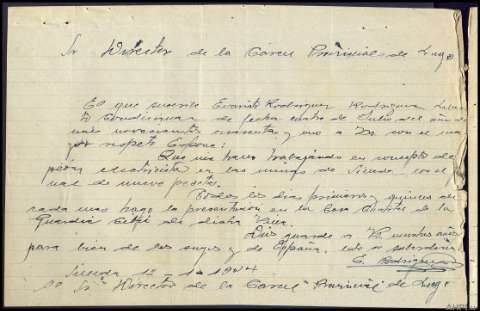 Sr Director de la Cárcel Provincial de Lugo
El que suscribe Evaristo Rodriguez Rodriguez
Condicional de fecha cuatro de Julio del año de
mil novecientos cuarenta y uno a V. con el ma
yor respeto Expone:
Que me hallo trabajando en concepto de
peon en las minas de con el
jornal de nueve pesetas.
Todos los dias primeros y quince de
cada mes hago la presentacion en la Casa Cuartel de la
Guardia Civil de dicha
Dios guarde a V. muchos años
para bien de los suyos y de España,
E. Rodriguez
12-1-1944
Sr Sr "Director de la Carcel" Provincial de Lugo